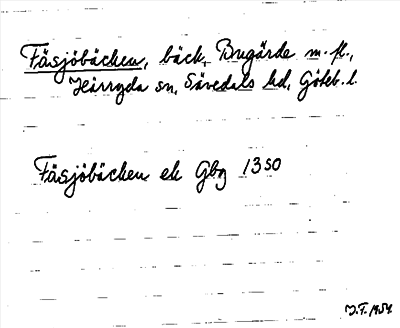 Fäsjöbäcken, bäck, Bugärde m. fl.,
Härryda sn, Sävedals hd, Göteb. l.
Fäsjöbäcken ek Gbg 1350
J.F. 1954